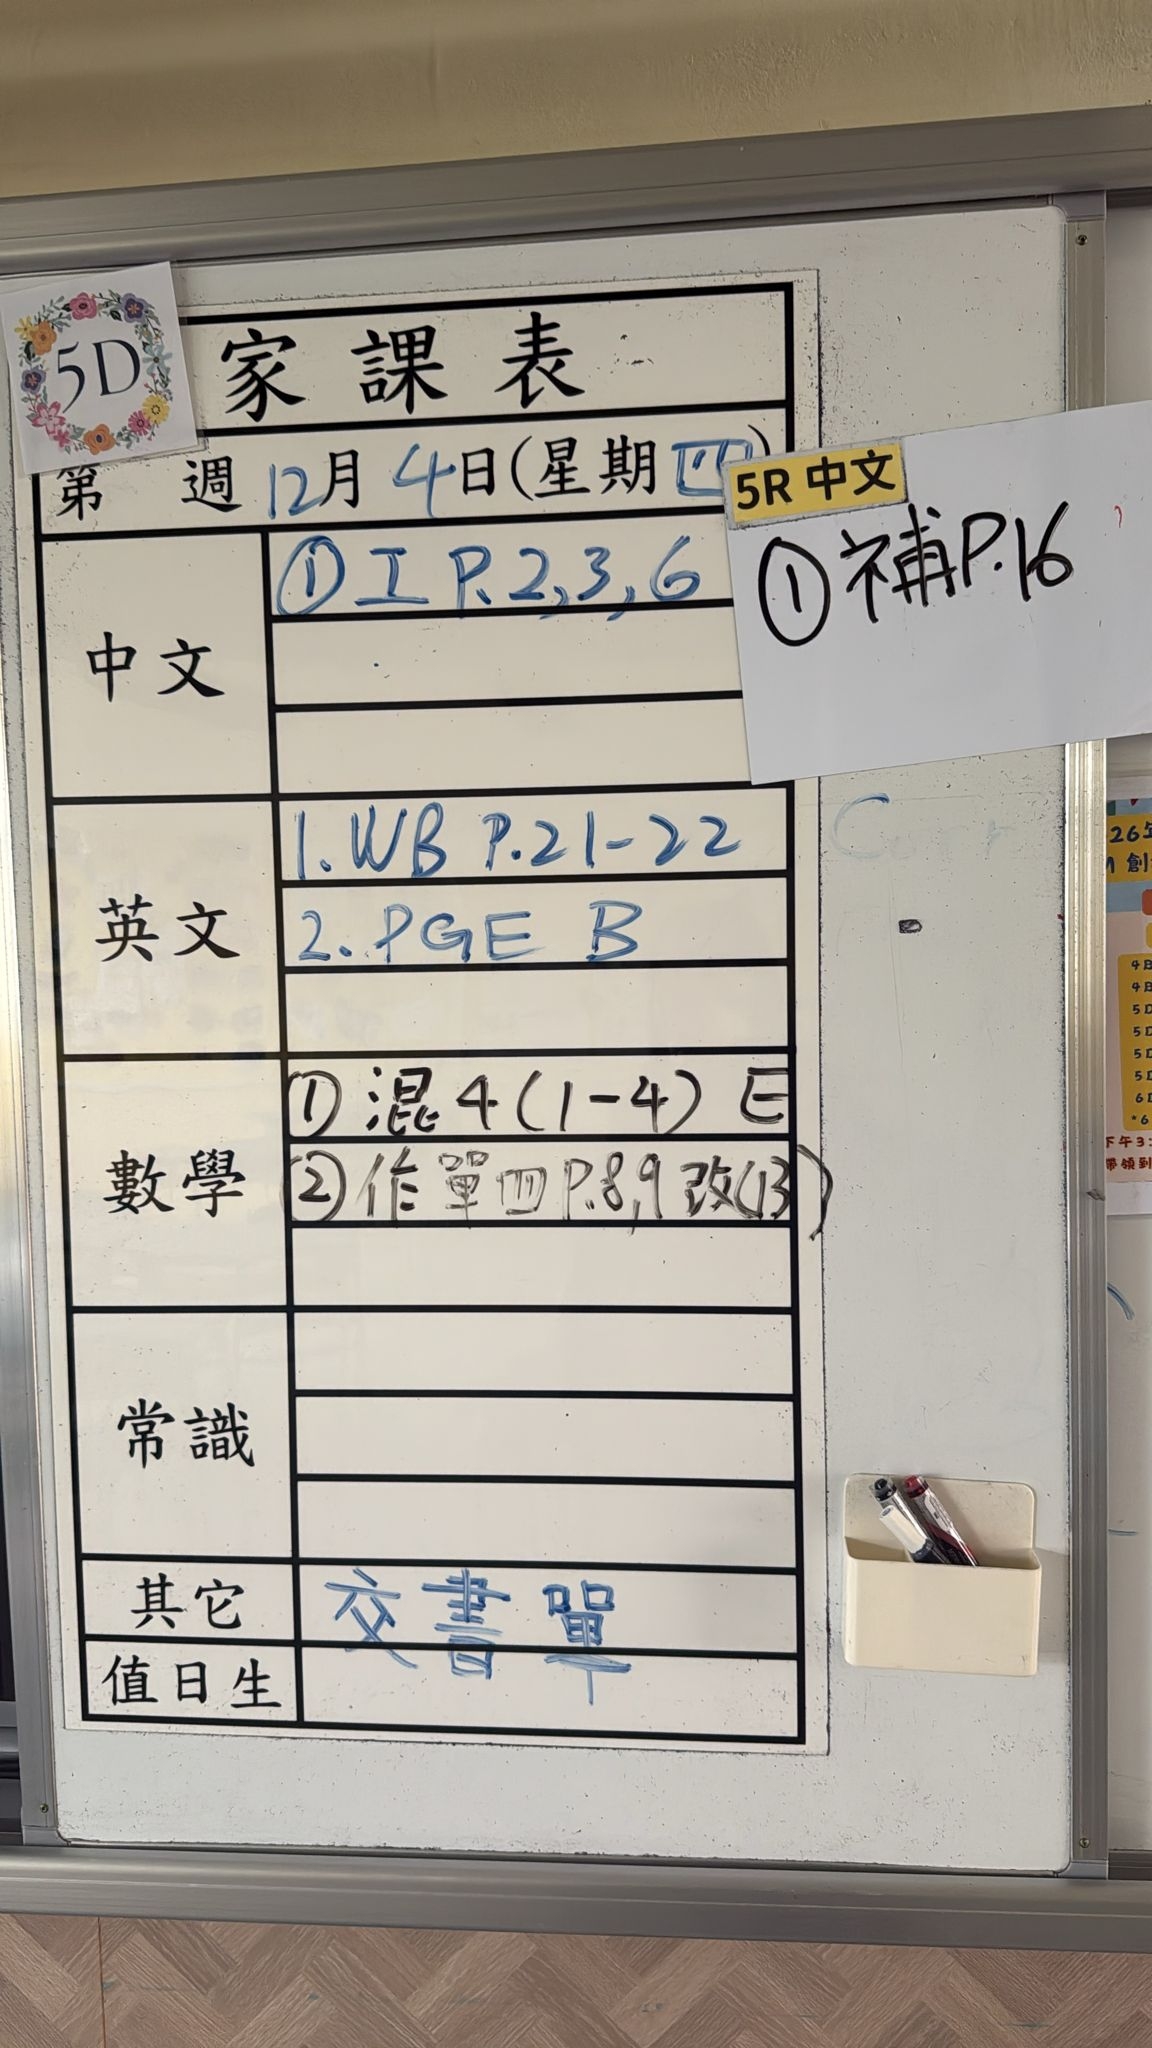 5D
家課表
第 週 12月 4日(星期四)
5R 中文
① 補P.16
中文
① 工 P.2,3,6
英文
1. WB P.21-22
2. PGE B
數學
① 混4(1-4) E
② 作單四P.8,9改(13)
常識
其它
交書單
值日生
26年
創
4日
4日
5D
5D
5D
5D
6D
*6
下午3:
帶領到